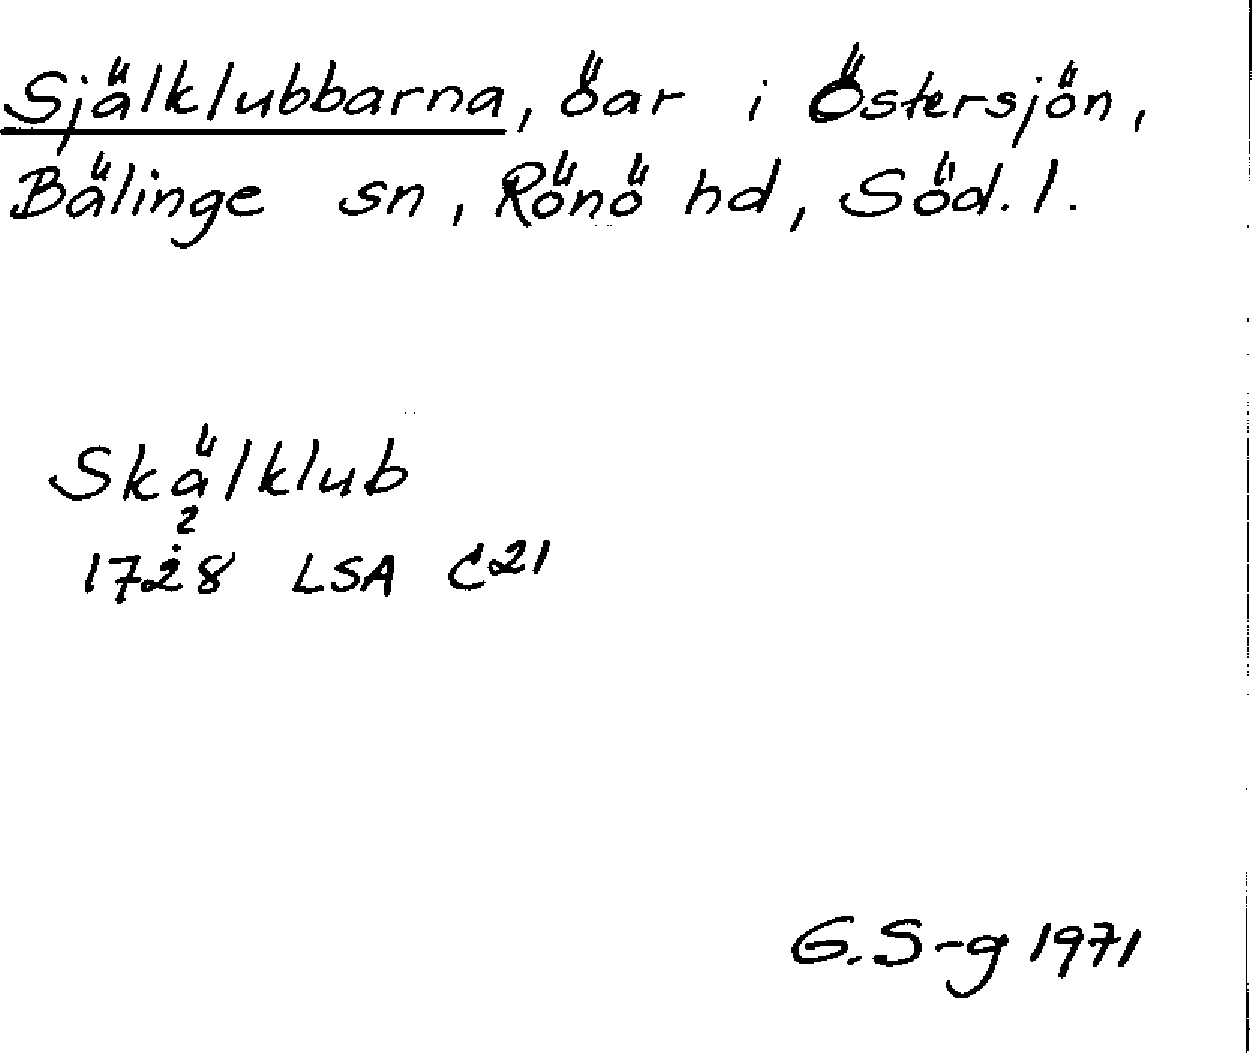 Själklubbarna, öar i Östersjön,
Bälinge sn, Rönö hd, Söd. l.
Skälklub
2
1728 LSA C21
G.S-g 1971